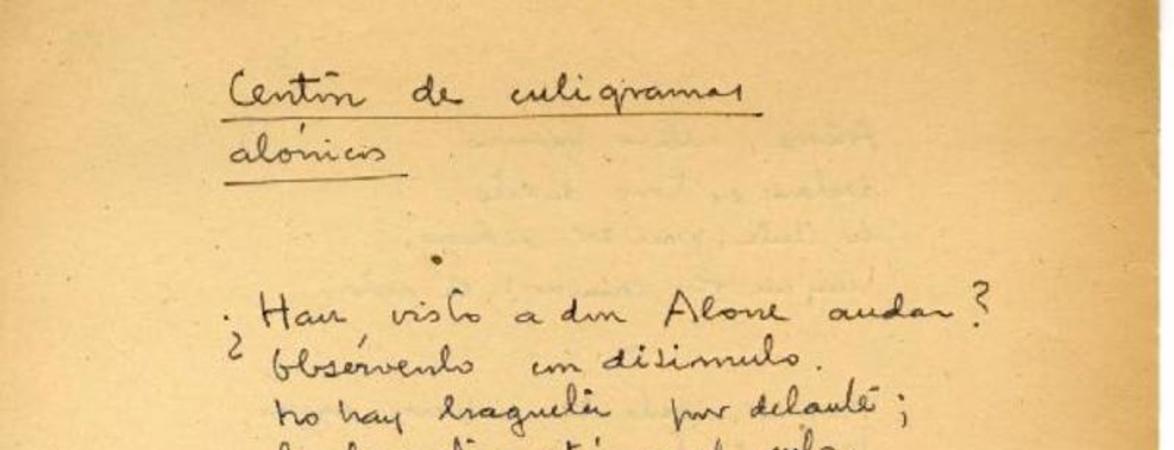 Centón de culigramas
alónicos
¿Han visto a don Alone andar?
Obsérvenlo con disimulo.
No hay bragueta por delante;
culo